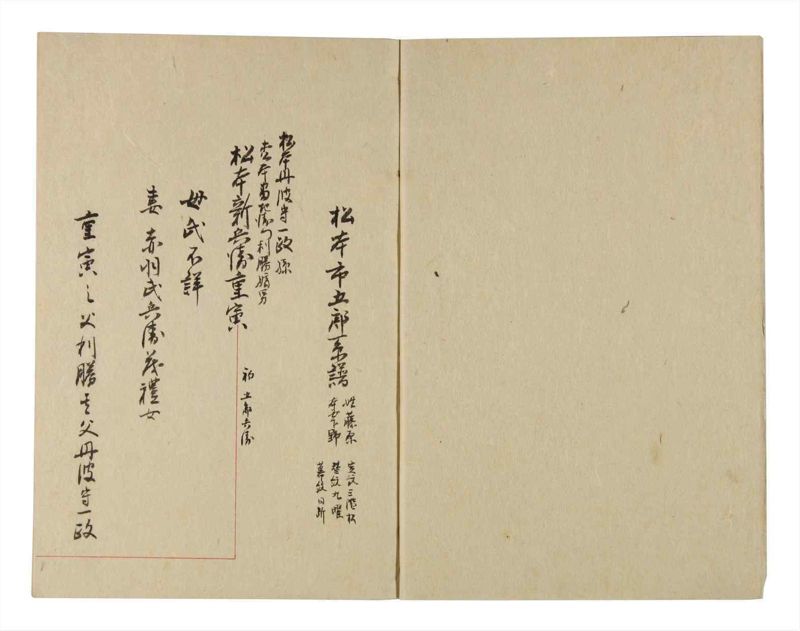 松本市五郎系譜
姓藤原
本国下野
定紋三階松
替紋九曜
幕紋同断
松本丹波守一政孫
松本勘左衛門利勝嫡男
松本新兵衛重寅
初五郎兵衛
母氏不詳
妻赤羽氏兵衛茂禮女
重寅之父利勝其父丹波守一政